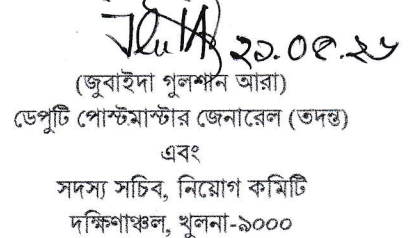 (জুবাইদা গুলশান আরা)
ডেপুটি পোস্টমাস্টার জেনারেল (তদন্ত)
এবং
সদস্য সচিব, নিয়োগ কমিটি
দক্ষিণাঞ্চল, খুলনা-৯০০০